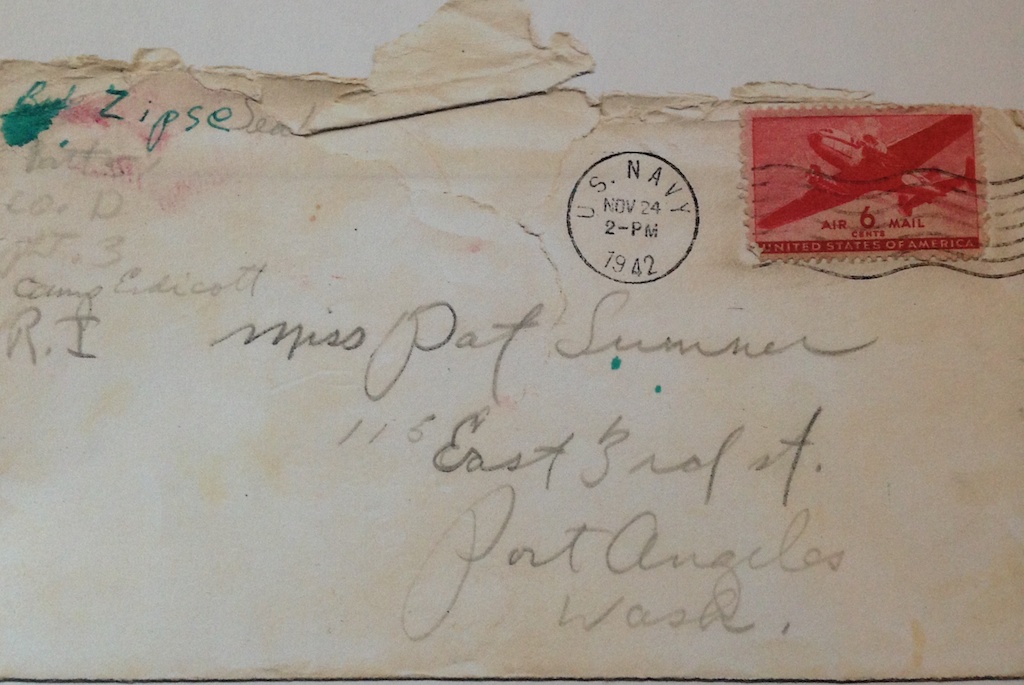 Zipse Sea
Co. D
3
Camp Endicott
R.I
U.S. NAVY
NOV 24
2-PM
1942
AIR 6 MAIL
CENTS
UNITED STATES OF AMERICA
Miss Pat Sumner
115 East 3rd st.
Port Angeles
Wash.